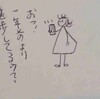 おっ!
一年めより
進歩してるので、